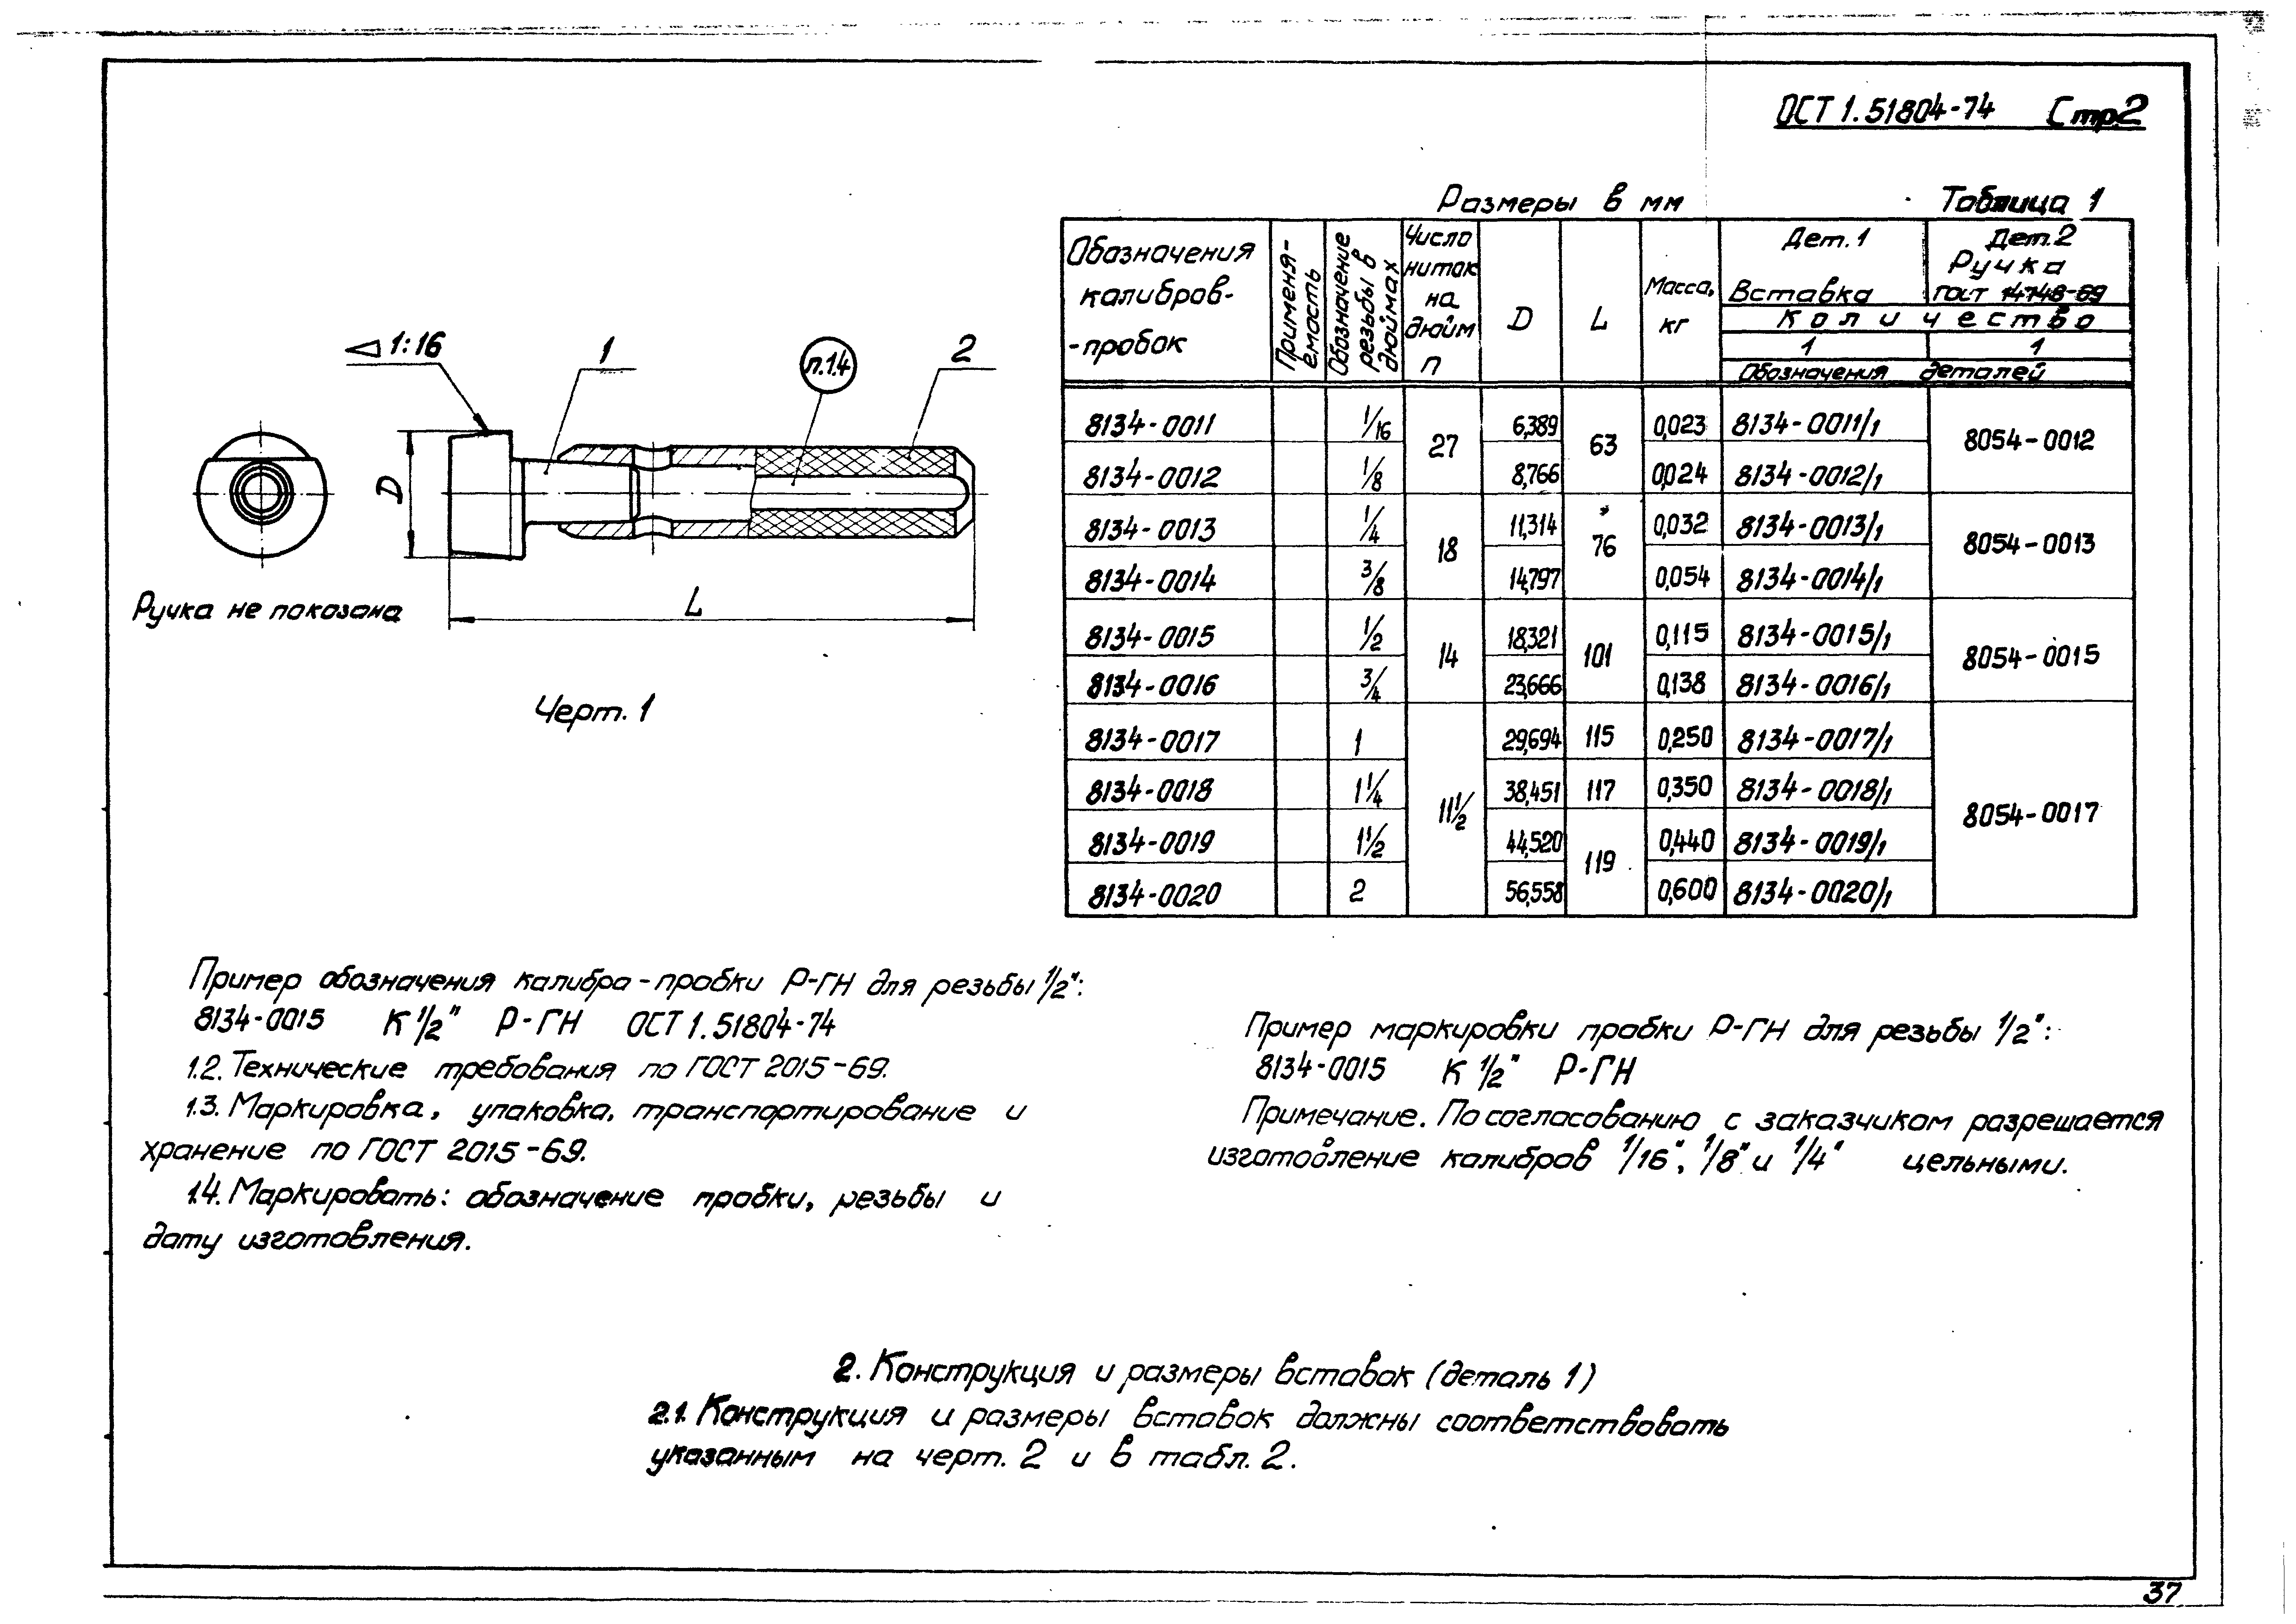 ОСТ 1.51804-74 Стр2
Размеры в мм Таблица 1
Обозначения калибров- -пробок
Применя- емость
Обозначение резьбы в дюймах
Число ниток на дюйм n
D
L
Масса, кг
Дет. 1 Вставка
Дет. 2 Ручка ГОСТ 14748-69
Количество
1 1
Обозначения деталей
8134-0011 1/16 27 6,389 63 0,023 8134-0011/1 8054-0012
8134-0012 1/8 8,766 0,024 8134-0012/1
8134-0013 1/4 18 11,314 76 0,032 8134-0013/1 8054-0013
8134-0014 3/8 14,797 0,054 8134-0014/1
8134-0015 1/2 14 18,321 101 0,115 8134-0015/1 8054-0015
8134-0016 3/4 23,666 0,138 8134-0016/1
8134-0017 1 11 1/2 29,694 115 0,250 8134-0017/1 8054-0017
8134-0018 1 1/4 38,451 117 0,350 8134-0018/1
8134-0019 1 1/2 44,520 119 0,440 8134-0019/1
8134-0020 2 56,558 0,600 8134-0020/1
1:16
1
п.1.4
2
D
L
Ручка не показана
Черт. 1
Пример обозначения калибра-пробки Р-ГН для резьбы 1/2":
8134-0015 К 1/2" Р-ГН ОСТ 1.51804-74
1.2. Технические требования по ГОСТ 2015-69.
1.3. Маркировка, упаковка, транспортирование и
хранение по ГОСТ 2015-69.
1.4. Маркировать: обозначение пробки, резьбы и
дату изготовления.
Пример маркировки пробки Р-ГН для резьбы 1/2":
8134-0015 К 1/2" Р-ГН
Примечание. По согласованию с заказчиком разрешается
изготовление калибров 1/16", 1/8" и 1/4" цельными.
2. Конструкция и размеры вставок (деталь 1)
2.1. Конструкция и размеры вставок должны соответствовать
указанным на черт. 2 и в табл. 2.
37